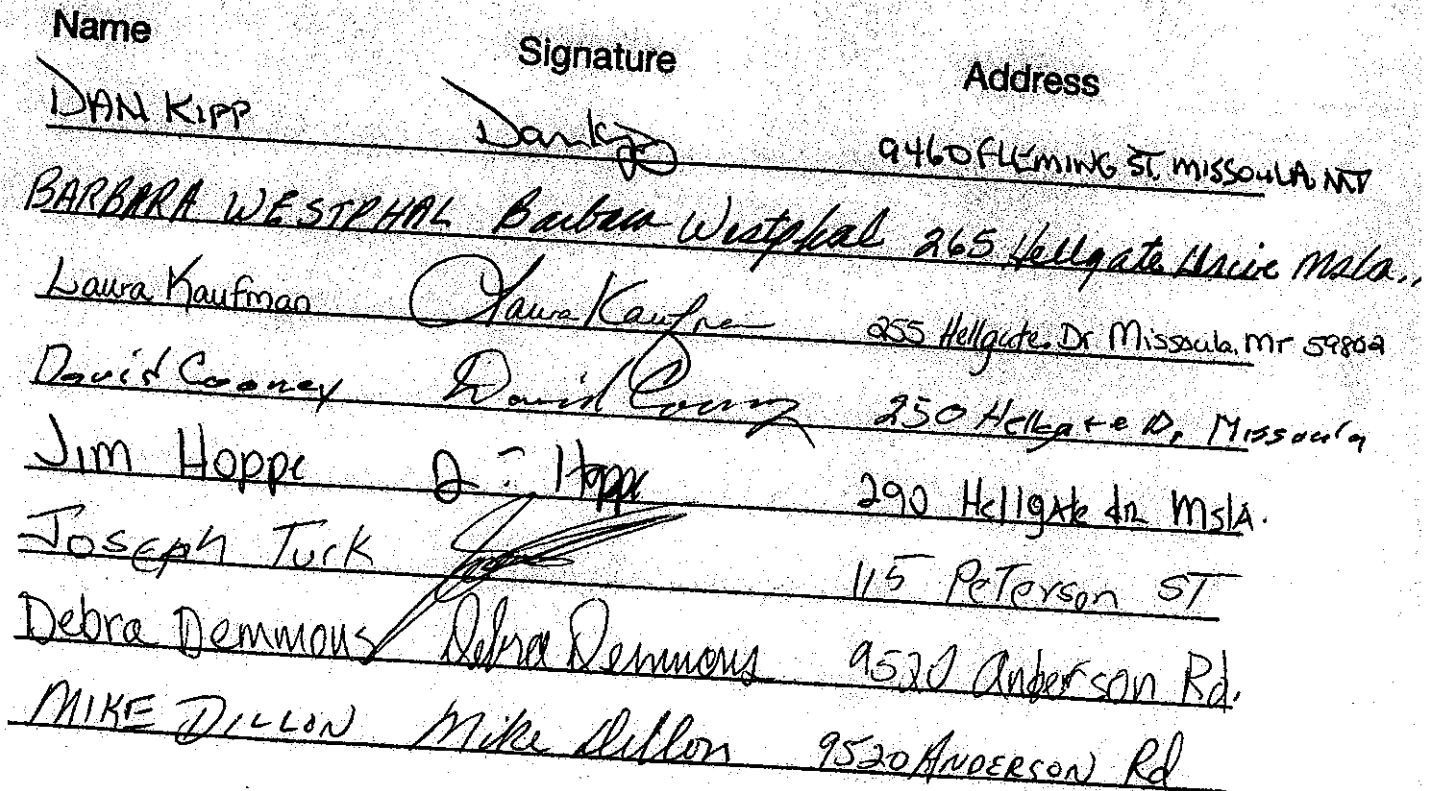 Name Signature Address
DAN KIPP Dan Kipp 9460 FLEMING ST. MISSOULA MT
BARBARA WESTPHAL Barbara Westphal 265 Hellgate Drive Msla..
Laura Kaufman Laura Kaufman 255 Hellgate Dr Missoula, MT 59802
David Cooney David Cooney 250 Hellgate Dr Missoula
Jim Hoppe Hoppe 290 Hellgate dr. MslA.
Joseph Turk 115 Peterson ST
Debra Demmons Debra Demmons 9520 Anderson Rd.
MIKE DILLON Mike Dillon 9520 ANDERSON Rd